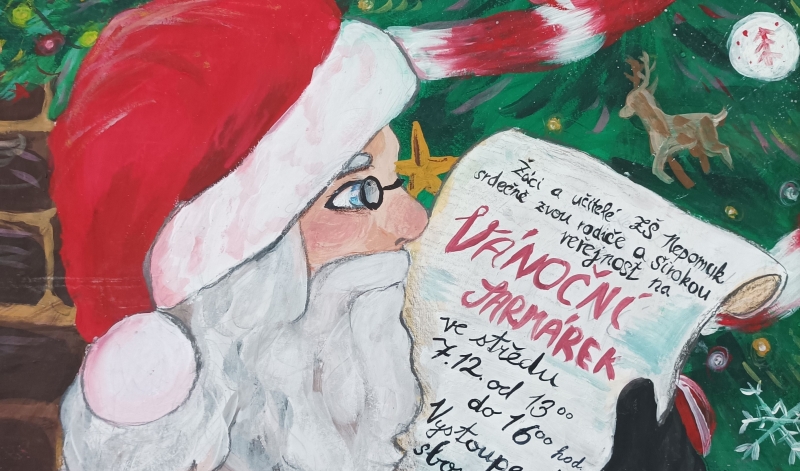 Žáci a učitelé ZŠ Nepomuk
srdečně zvou rodiče a širokou
veřejnost na
VÁNOČNÍ
JARMÁREK
ve středu
7.12. od 13⁰⁰
do 16⁰⁰ hod.
Vystoupe
sbo